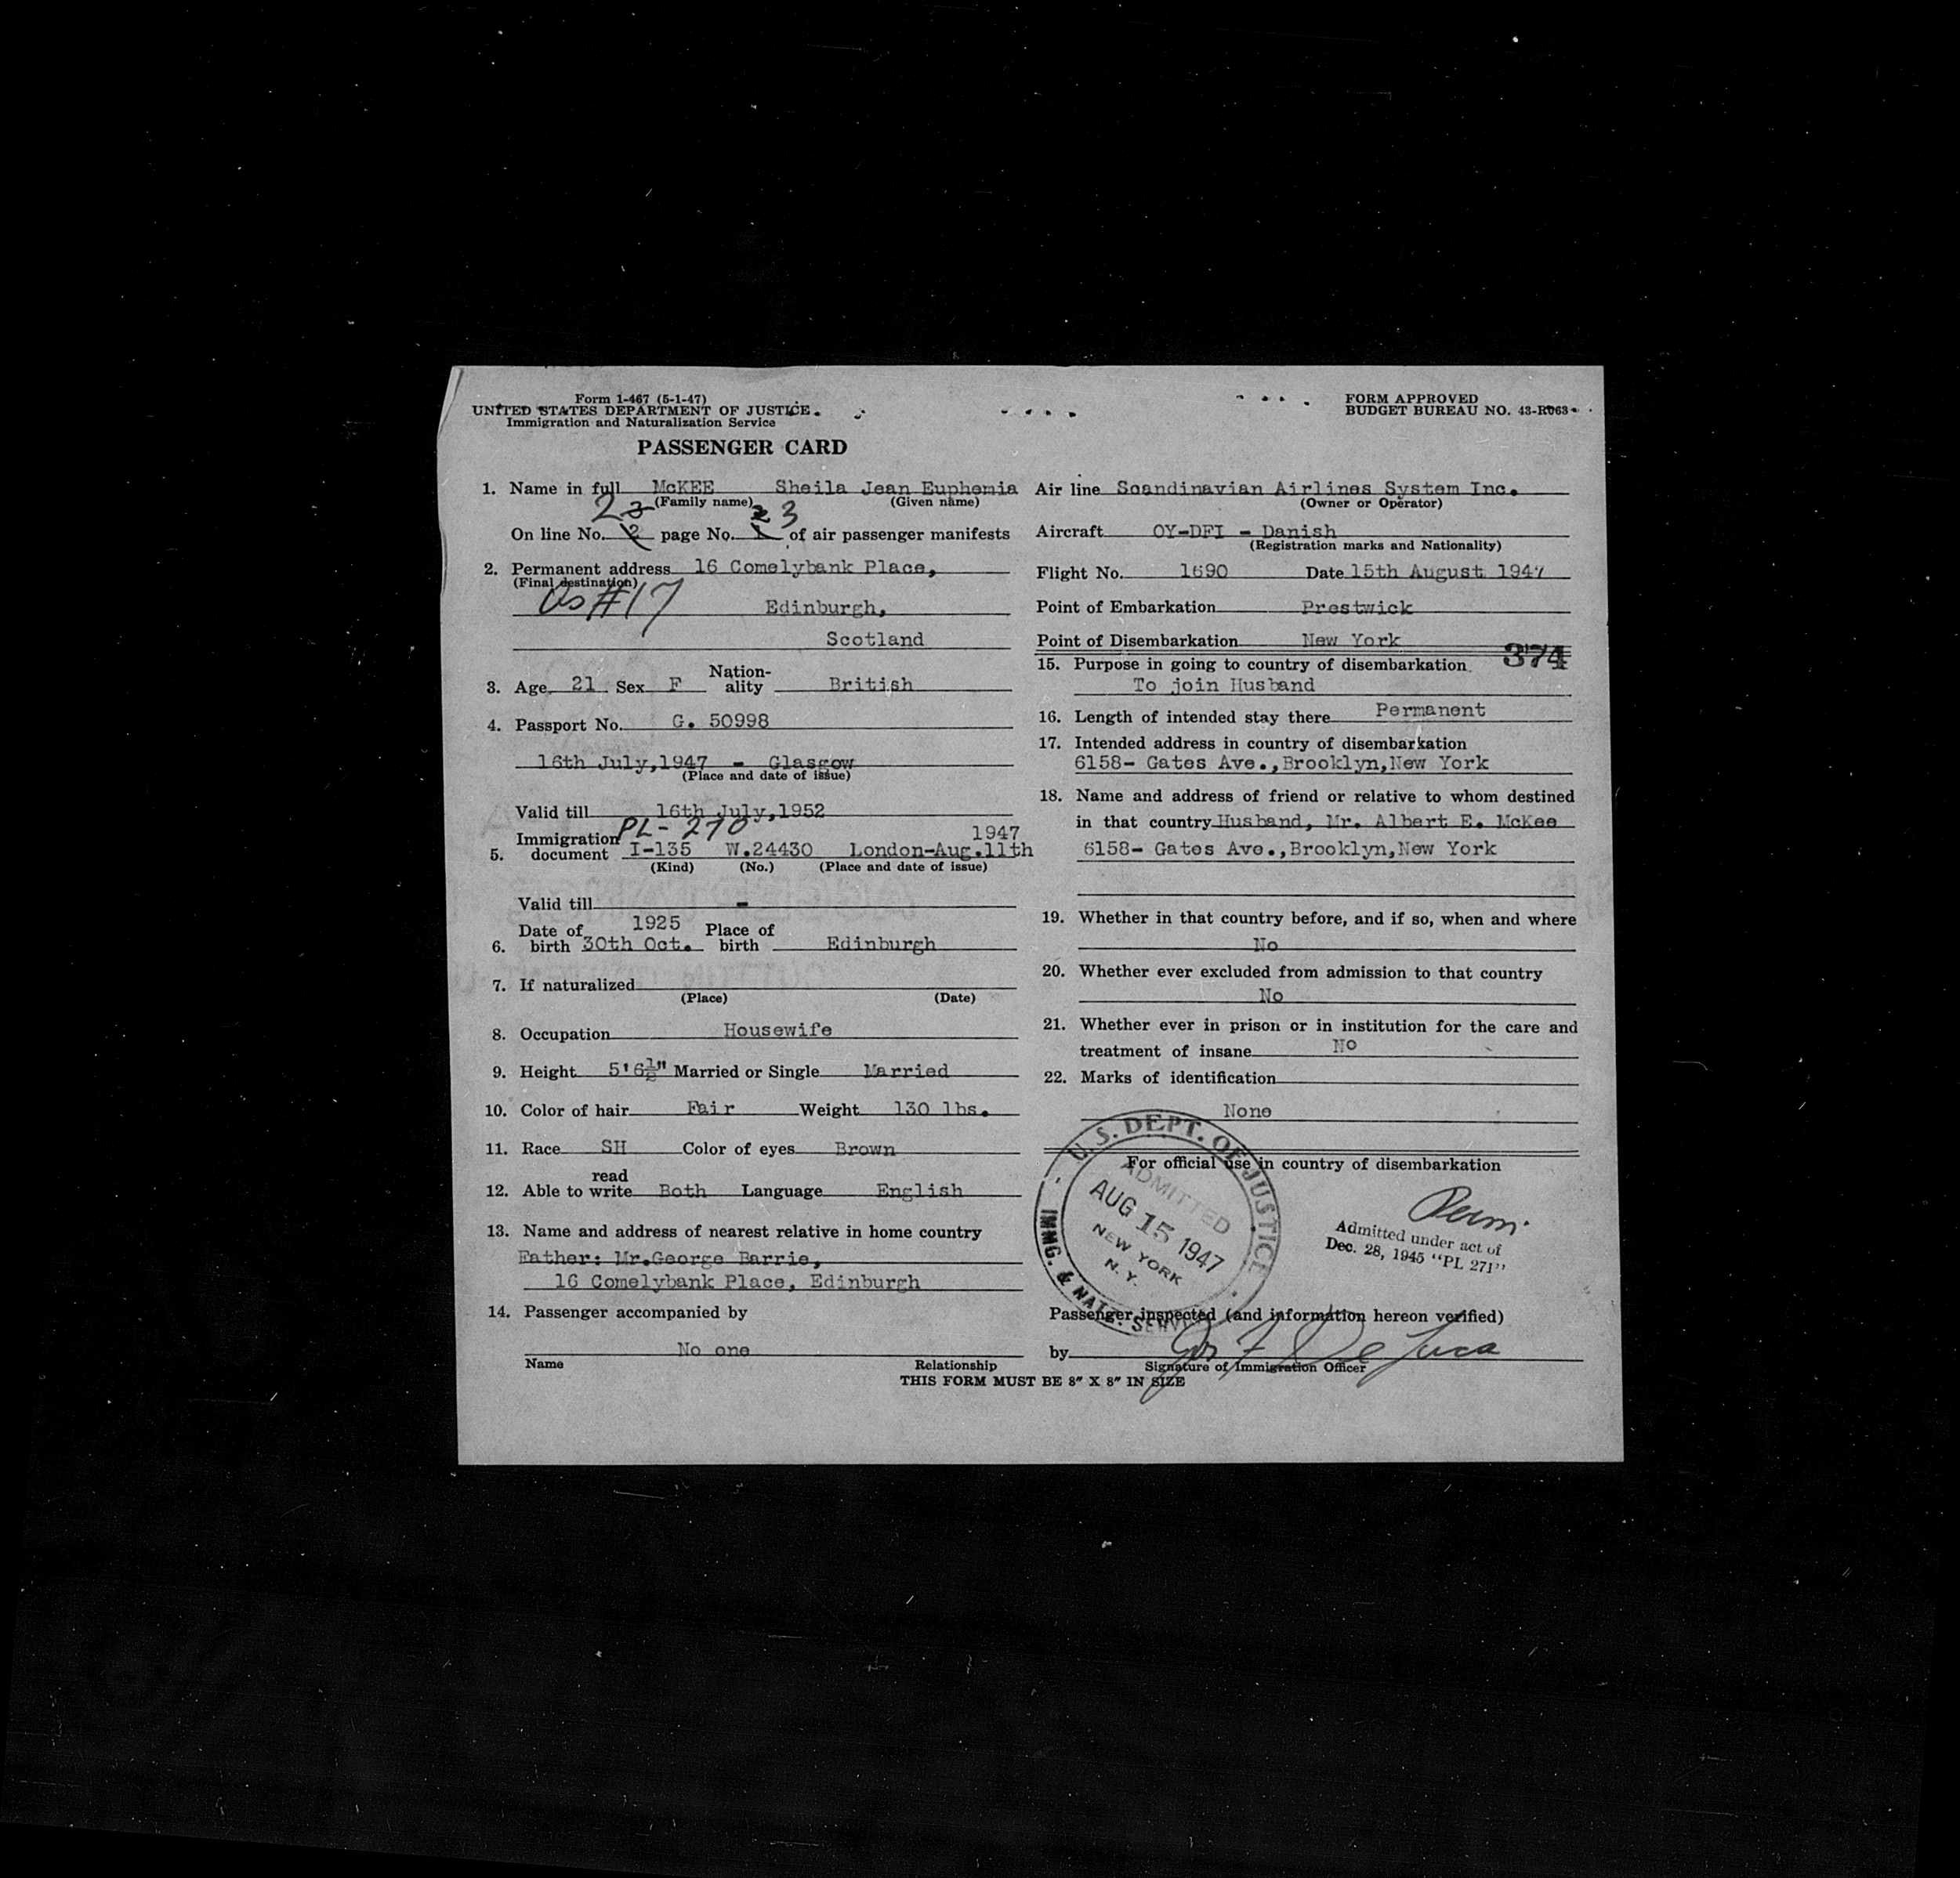 Form 1-467 (5-1-47)
UNITED STATES DEPARTMENT OF JUSTICE.
Immigration and Naturalization Service
FORM APPROVED
BUDGET BUREAU NO. 43-R063
PASSENGER CARD
1. Name in full McKEE Sheila Jean Euphemia
(Family name) (Given name)
2 3 2 3
On line No. 2 page No. 1 of air passenger manifests
2. Permanent address 16 Comelybank Place,
(Final destination)
As #17 Edinburgh,
Scotland
3. Age 21 Sex F Nation-ality British
4. Passport No. G. 50998
16th July,1947 - Glasgow
(Place and date of issue)
Valid till 16th July,1952
PL-270 1947
5. Immigration document I-135 W.24430 London-Aug.11th
(Kind) (No.) (Place and date of issue)
Valid till -
1925
6. Date of birth 30th Oct. Place of birth Edinburgh
7. If naturalized
(Place) (Date)
8. Occupation Housewife
9. Height 5'6½" Married or Single Married
10. Color of hair Fair Weight 130 lbs.
11. Race SH Color of eyes Brown
12. Able to read write Both Language English
13. Name and address of nearest relative in home country
Father: Mr.George Barrie,
16 Comelybank Place, Edinburgh
14. Passenger accompanied by
No one
Name Relationship
Air line Scandinavian Airlines System Inc.
(Owner or Operator)
Aircraft OY-DFI - Danish
(Registration marks and Nationality)
Flight No. 1690 Date 15th August 1947
Point of Embarkation Prestwick
Point of Disembarkation New York
374
15. Purpose in going to country of disembarkation
To join Husband
16. Length of intended stay there Permanent
17. Intended address in country of disembarkation
6158- Gates Ave.,Brooklyn,New York
18. Name and address of friend or relative to whom destined
in that country Husband, Mr. Albert E. McKee
6158- Gates Ave.,Brooklyn,New York
19. Whether in that country before, and if so, when and where
No
20. Whether ever excluded from admission to that country
No
21. Whether ever in prison or in institution for the care and
treatment of insane No
22. Marks of identification
None
For official use in country of disembarkation
U.S. DEPT. OF JUSTICE
ADMITTED
AUG 15 1947
NEW YORK
N. Y.
IMMG. & NATZ. SERVICE
Perm.
Admitted under act of
Dec. 28, 1945 "PL 271"
Passenger inspected (and information hereon verified)
by Jos F De Luca
Signature of Immigration Officer
THIS FORM MUST BE 8" X 8" IN SIZE